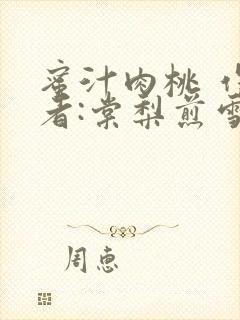 蜜汁肉桃 作
者:棠梨煎雪
周惠